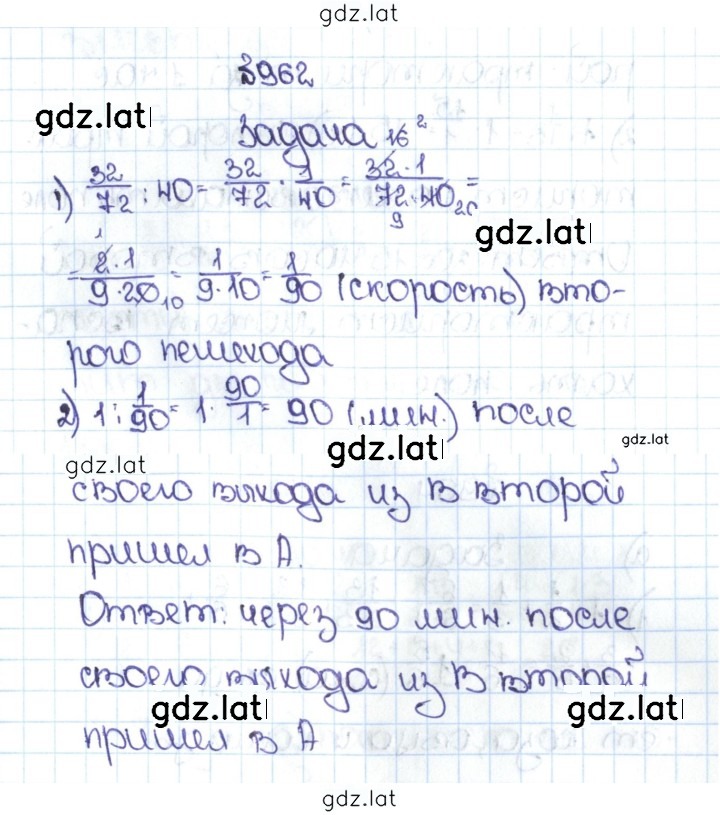 gdz.lat
№962
gdz.lat
Задача
1) 32/72 : 40 = 32/72 · 1/40 = 32·1/72·40 =
gdz.lat
= 2·1/9·20 = 1/9·10 = 1/90 (скорость) вто-
рого пешехода
2) 1 : 1/90 = 1 · 90/1 = 90 (мин.) после
gdz.lat
gdz.lat
gdz.lat
своего выхода из В второй
пришел в А.
Ответ: через 90 мин. после
своего выхода из В второй
gdz.lat
gdz.lat
пришел в А
gdz.lat